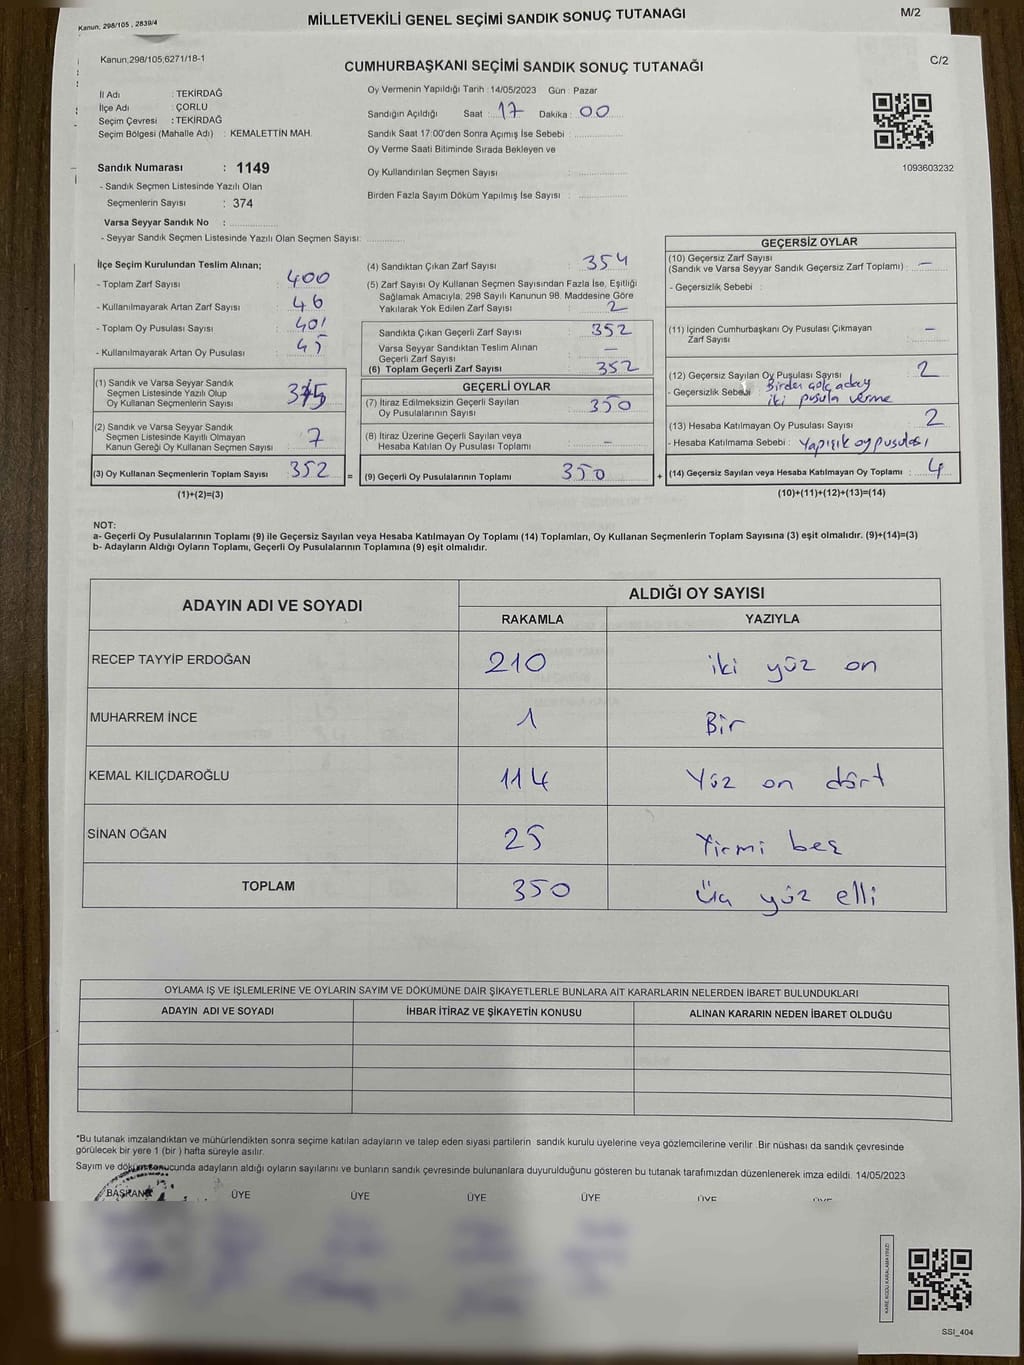 Kanun, 298/105 , 2839/4
MİLLETVEKİLİ GENEL SEÇİMİ SANDIK SONUÇ TUTANAĞI
M/2
Kanun,298/105,6271/18-1
CUMHURBAŞKANI SEÇİMİ SANDIK SONUÇ TUTANAĞI
C/2
İl Adı : TEKİRDAĞ
İlçe Adı : ÇORLU
Seçim Çevresi : TEKİRDAĞ
Seçim Bölgesi (Mahalle Adı) : KEMALETTİN MAH.
Sandık Numarası : 1149
- Sandık Seçmen Listesinde Yazılı Olan
Seçmenlerin Sayısı : 374
Varsa Seyyar Sandık No :
- Seyyar Sandık Seçmen Listesinde Yazılı Olan Seçmen Sayısı:
Oy Vermenin Yapıldığı Tarih : 14/05/2023 Gün : Pazar
Sandığın Açıldığı Saat : 17 Dakika : 00
Sandık Saat 17:00'den Sonra Açımış İse Sebebi :
Oy Verme Saati Bitiminde Sırada Bekleyen ve
Oy Kullandırılan Seçmen Sayısı :
Birden Fazla Sayım Döküm Yapılmış İse Sayısı :
1093603232
İlçe Seçim Kurulundan Teslim Alınan;
- Toplam Zarf Sayısı : 400
- Kullanılmayarak Artan Zarf Sayısı : 46
- Toplam Oy Pusulası Sayısı : 401
- Kullanılmayarak Artan Oy Pusulası : 45
(1) Sandık ve Varsa Seyyar Sandık
Seçmen Listesinde Yazılı Olup
Oy Kullanan Seçmenlerin Sayısı : 345
(2) Sandık ve Varsa Seyyar Sandık
Seçmen Listesinde Kayıtlı Olmayan
Kanun Gereği Oy Kullanan Seçmen Sayısı : 7
(3) Oy Kullanan Seçmenlerin Toplam Sayısı : 352 =
(1)+(2)=(3)
(4) Sandıktan Çıkan Zarf Sayısı : 354
(5) Zarf Sayısı Oy Kullanan Seçmen Sayısından Fazla İse, Eşitliği
Sağlamak Amacıyla, 298 Sayılı Kanunun 98. Maddesine Göre
Yakılarak Yok Edilen Zarf Sayısı : 2
Sandıkta Çıkan Geçerli Zarf Sayısı : 352
Varsa Seyyar Sandıktan Teslim Alınan
Geçerli Zarf Sayısı : —
(6) Toplam Geçerli Zarf Sayısı : 352
GEÇERLİ OYLAR
(7) İtiraz Edilmeksizin Geçerli Sayılan
Oy Pusulalarının Sayısı : 350
(8) İtiraz Üzerine Geçerli Sayılan veya
Hesaba Katılan Oy Pusulası Toplamı : —
(9) Geçerli Oy Pusulalarının Toplamı : 350 +
GEÇERSİZ OYLAR
(10) Geçersiz Zarf Sayısı
(Sandık ve Varsa Seyyar Sandık Geçersiz Zarf Toplamı) : —
- Geçersizlik Sebebi :
(11) İçinden Cumhurbaşkanı Oy Pusulası Çıkmayan
Zarf Sayısı : —
(12) Geçersiz Sayılan Oy Pusulası Sayısı : 2
- Geçersizlik Sebebi : Birden çok aday
iki pusula verme
(13) Hesaba Katılmayan Oy Pusulası Sayısı : 2
- Hesaba Katılmama Sebebi : Yapışık oy pusulası
(14) Geçersiz Sayılan veya Hesaba Katılmayan Oy Toplamı : 4
(10)+(11)+(12)+(13)=(14)
NOT:
a- Geçerli Oy Pusulalarının Toplamı (9) ile Geçersiz Sayılan veya Hesaba Katılmayan Oy Toplamı (14) Toplamları, Oy Kullanan Seçmenlerin Toplam Sayısına (3) eşit olmalıdır. (9)+(14)=(3)
b- Adayların Aldığı Oyların Toplamı, Geçerli Oy Pusulalarının Toplamına (9) eşit olmalıdır.
ADAYIN ADI VE SOYADI ALDIĞI OY SAYISI
RAKAMLA YAZIYLA
RECEP TAYYİP ERDOĞAN 210 iki yüz on
MUHARREM İNCE 1 Bir
KEMAL KILIÇDAROĞLU 114 Yüz on dört
SİNAN OĞAN 25 Yirmi beş
TOPLAM 350 Üç yüz elli
OYLAMA İŞ VE İŞLEMLERİNE VE OYLARIN SAYIM VE DÖKÜMÜNE DAİR ŞİKAYETLERLE BUNLARA AİT KARARLARIN NELERDEN İBARET BULUNDUKLARI
ADAYIN ADI VE SOYADI İHBAR İTİRAZ VE ŞİKAYETİN KONUSU ALINAN KARARIN NEDEN İBARET OLDUĞU
*Bu tutanak imzalandıktan ve mühürlendikten sonra seçime katılan adayların ve talep eden siyasi partilerin sandık kurulu üyelerine veya gözlemcilerine verilir. Bir nüshası da sandık çevresinde
görülecek bir yere 1 (bir ) hafta süreyle asılır.
Sayım ve döküm sonucunda adayların aldığı oyların sayılarını ve bunların sandık çevresinde bulunanlara duyurulduğunu gösteren bu tutanak tarafımızdan düzenlenerek imza edildi. 14/05/2023
BAŞKAN ÜYE ÜYE ÜYE ÜYE ÜYE ÜYE
KARE KODU KARALAMAYINIZ!
SSI_404